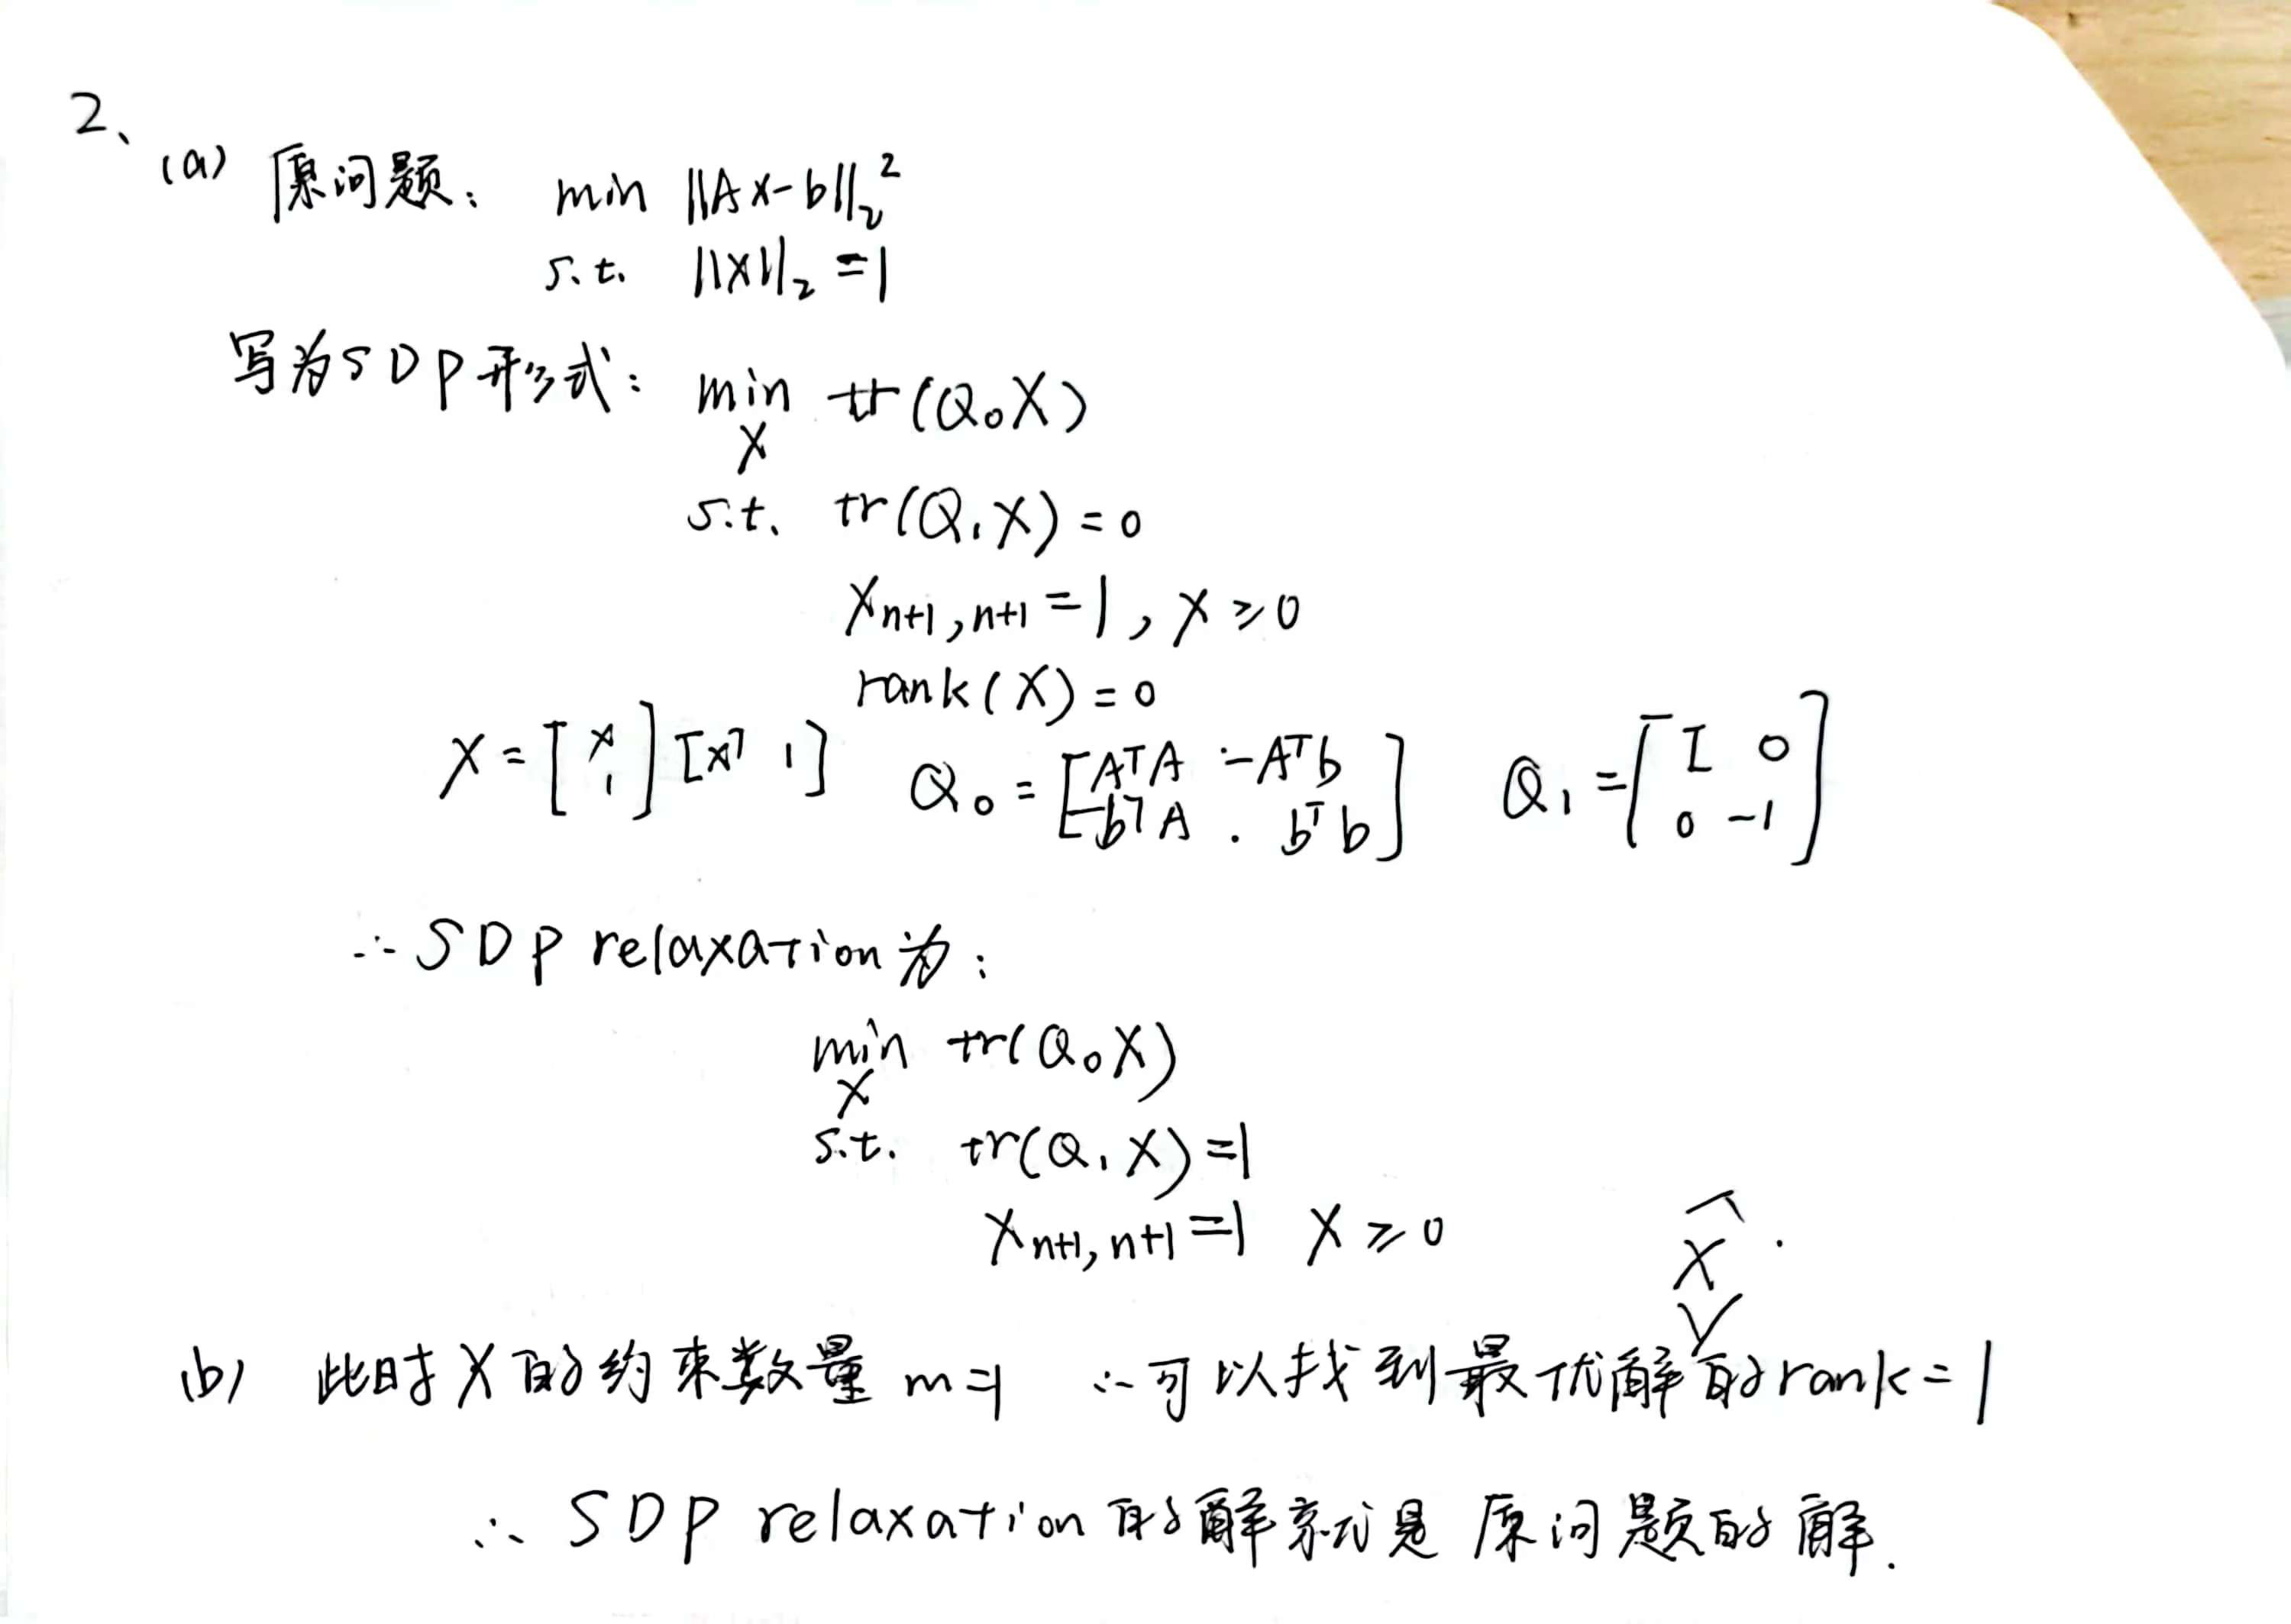 2、
(a) 原问题: min ||Ax-b||₂²
s.t. ||x||₂ = 1
写为SDP形式: min tr(Q₀X)
X
s.t. tr(Q₁X) = 0
Xn+1,n+1 = 1, X ≥ 0
rank(X) = 0
X = [x 1] [xᵀ 1] Q₀ = [AᵀA -Aᵀb -bᵀA bᵀb] Q₁ = [I 0 0 -1]
∴ SDP relaxation为:
min tr(Q₀X)
X
s.t. tr(Q₁X) = 1
Xn+1,n+1 = 1 X ≥ 0
(b) 此时X的约束数量 m=1 ∴可以找到最优解X̂的rank=1
∴ SDP relaxation的解就是原问题的解.